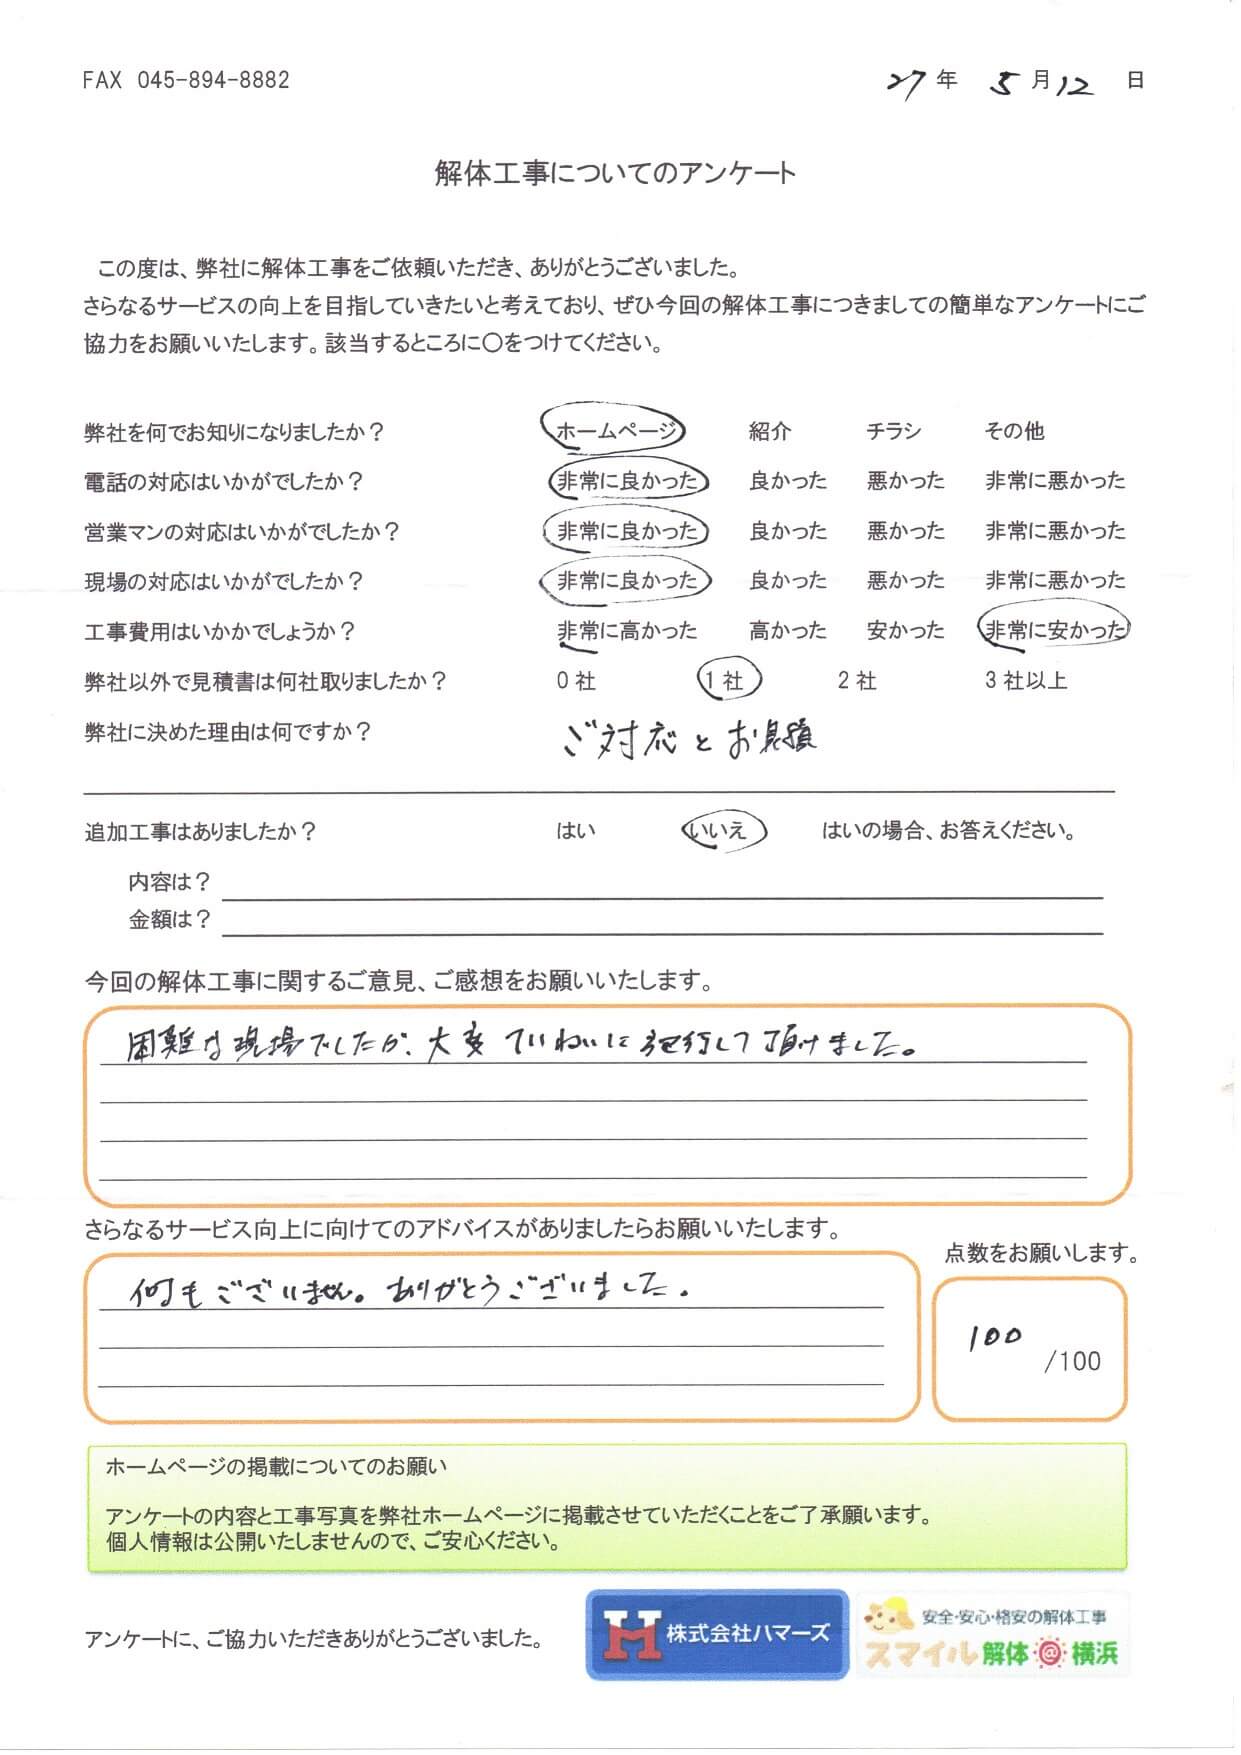 FAX 045-894-8882
27年 5月12日
解体工事についてのアンケート
この度は、弊社に解体工事をご依頼いただき、ありがとうございました。
さらなるサービスの向上を目指していきたいと考えており、ぜひ今回の解体工事につきましての簡単なアンケートにご
協力をお願いいたします。該当するところに〇をつけてください。
弊社を何でお知りになりましたか？ ホームページ 紹介 チラシ その他
電話の対応はいかがでしたか？ 非常に良かった 良かった 悪かった 非常に悪かった
営業マンの対応はいかがでしたか？ 非常に良かった 良かった 悪かった 非常に悪かった
現場の対応はいかがでしたか？ 非常に良かった 良かった 悪かった 非常に悪かった
工事費用はいかかでしょうか？ 非常に高かった 高かった 安かった 非常に安かった
弊社以外で見積書は何社取りましたか？ 0社 1社 2社 3社以上
弊社に決めた理由は何ですか？ ご対応とお見積
追加工事はありましたか？ はい いいえ はいの場合、お答えください。
内容は？
金額は？
今回の解体工事に関するご意見、ご感想をお願いいたします。
困難な現場でしたが、大変ていねいに施行して頂けました。
さらなるサービス向上に向けてのアドバイスがありましたらお願いいたします。
点数をお願いします。
何もございません。ありがとうございました。
100
/100
ホームページの掲載についてのお願い
アンケートの内容と工事写真を弊社ホームページに掲載させていただくことをご了承願います。
個人情報は公開いたしませんので、ご安心ください。
アンケートに、ご協力いただきありがとうございました。
H 株式会社ハマーズ
安全・安心・格安の解体工事
スマイル解体@横浜